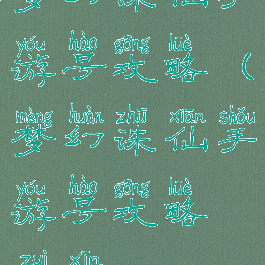 梦幻诛仙手
yóu hào gōng lüè
游号攻略(
mèng huàn zhū xiān shǒu
梦幻诛仙手
yóu hào gōng lüè
游号攻略
zuì xīn